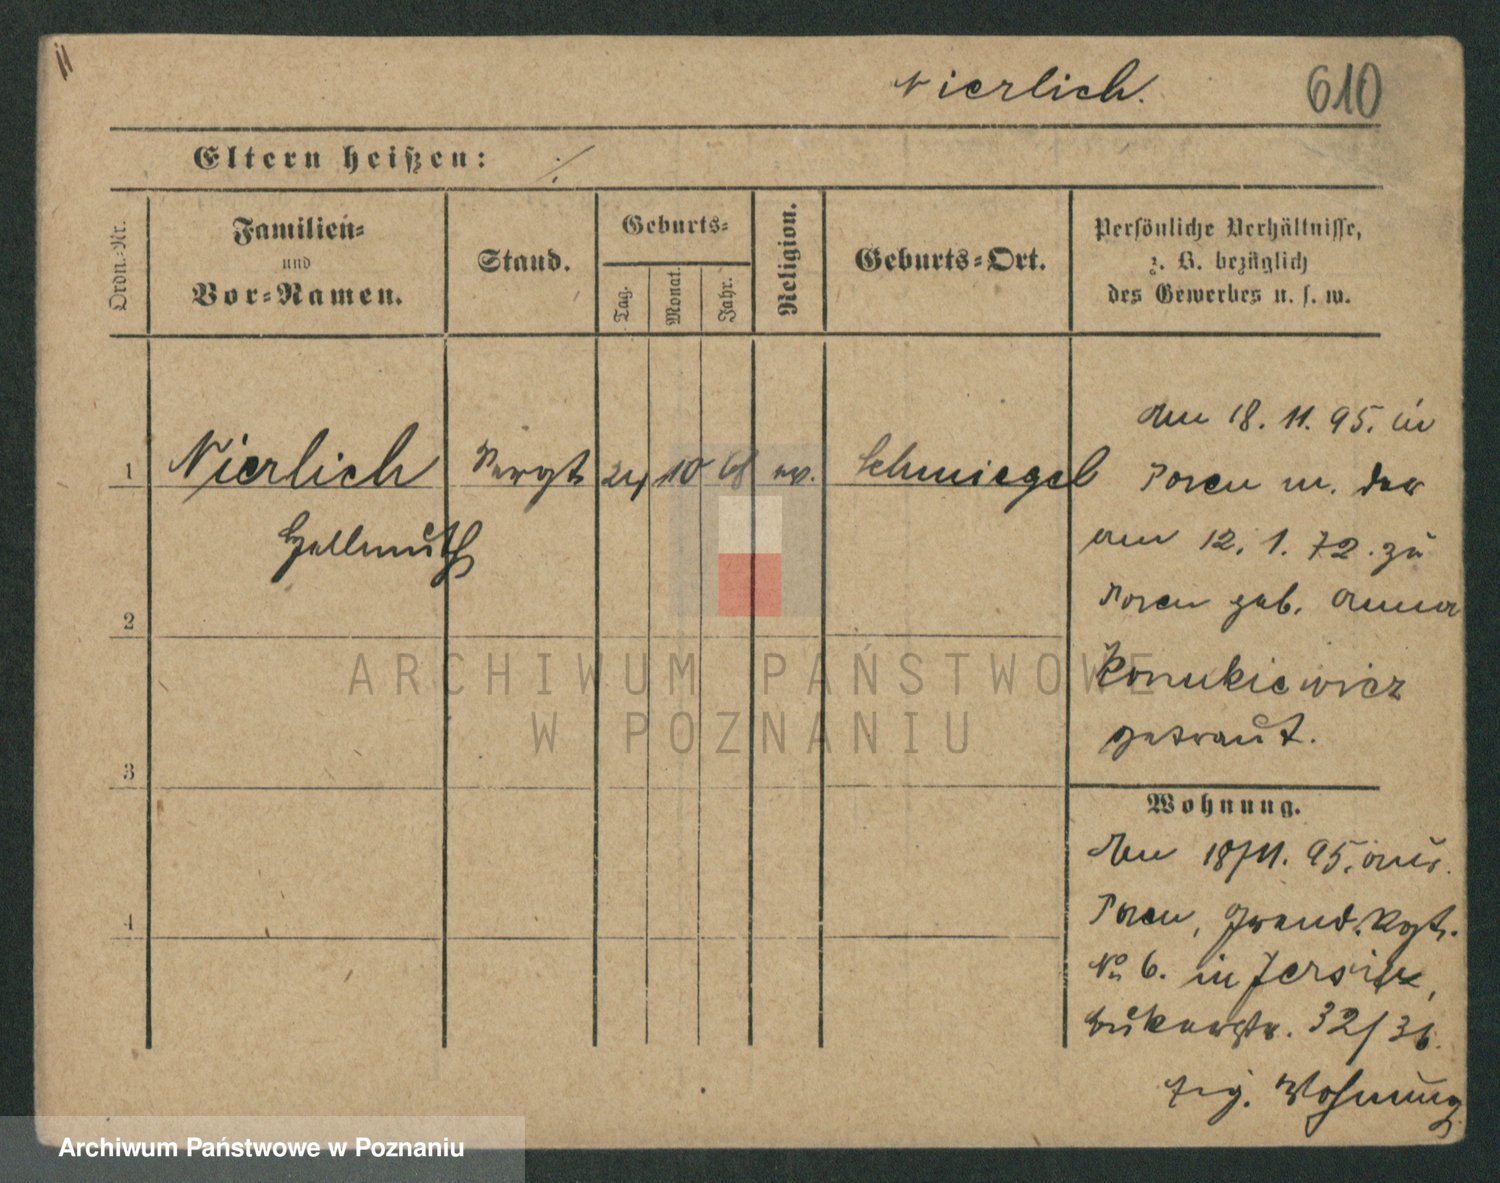 Nierlich. 610
Eltern heißen: ./.
Ordn.-Nr.
Familien-
und
Vor-Namen.
Stand.
Geburts-
Tag.
Monat.
Jahr.
Religion.
Geburts-Ort.
Persönliche Verhältnisse,
z. B. bezüglich
des Gewerbes u. s. w.
1 Nierlich 24 10 ev. Schmiegel
Hellmuth
2
3
4
den 18. 11. 95. in
Posen m. der
am 12. 1. 72. zu
Posen geb. Anna
Konukiewicz
getraut.
Wohnung.
Am 18/11. 95. aus
Posen, Grend.
No 6. in Jersitz,
Bukerstr. 32/36.
Wohnung
ARCHIWUM PAŃSTWOWE
W POZNANIU
Archiwum Państwowe w Poznaniu